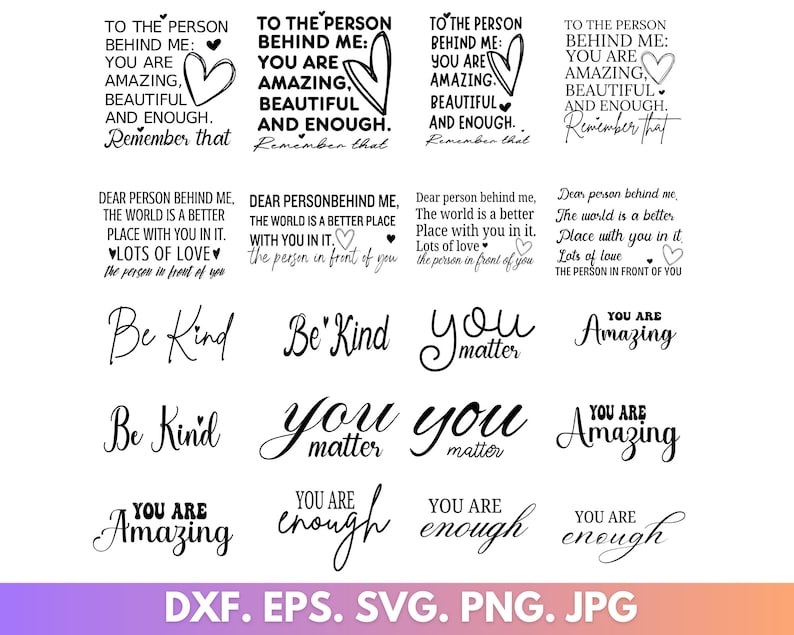 TO THE PERSON
BEHIND ME:
YOU ARE
AMAZING,
BEAUTIFUL
AND ENOUGH.
Remember that
TO THE PERSON
BEHIND ME:
YOU ARE
AMAZING,
BEAUTIFUL
AND ENOUGH.
Remember that
TO THE PERSON
BEHIND ME:
YOU ARE
AMAZING.
BEAUTIFUL
AND ENOUGH.
Remember that
TO THE PERSON
BEHIND ME:
YOU ARE
AMAZING,
BEAUTIFUL
AND ENOUGH.
Remember that
DEAR PERSON BEHIND ME,
THE WORLD IS A BETTER
PLACE WITH YOU IN IT.
LOTS OF LOVE
the person in front of you
DEAR PERSONBEHIND ME,
THE WORLD IS A BETTER PLACE
WITH YOU IN IT.
the person in front of you
Dear person behind me,
The world is a better
Place with you in it.
Lots of love
the person in front of you
Dear person behind me,
The world is a better
Place with you in it.
Lots of love
THE PERSON IN FRONT OF YOU
Be Kind
Be Kind
you
matter
YOU ARE
Amazing
Be Kind
you
matter
you
matter
YOU ARE
Amazing
YOU ARE
Amazing
YOU ARE
enough
YOU ARE
enough
YOU ARE
enough
DXF. EPS. SVG. PNG. JPG